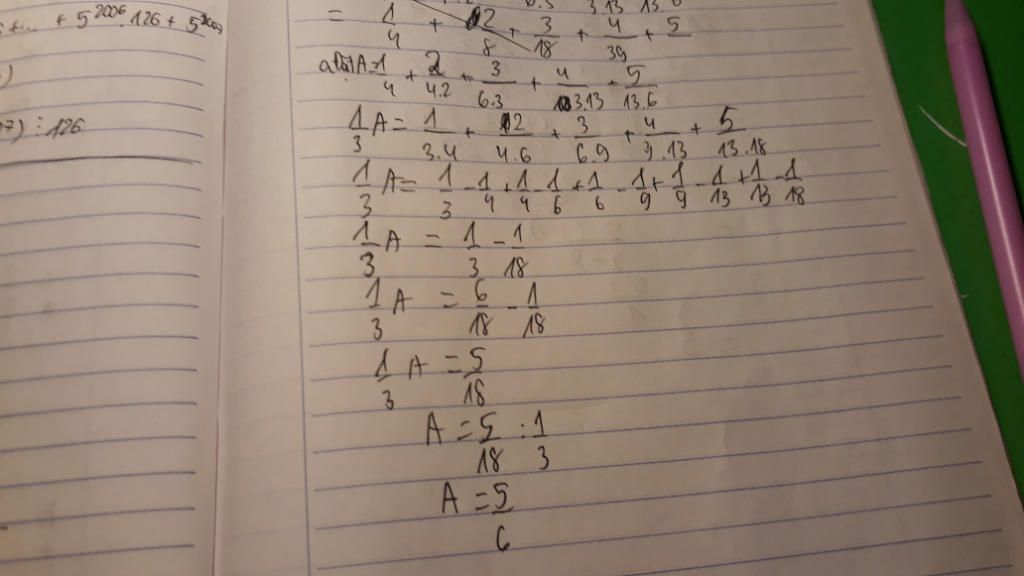 + 5^2006 . 126 + 5^2007
)
) : 126
= 1/4 + 2/8 + 3/18 + 4/39 + 5
A = 1/4 + 2/4.2 + 3/6.3 + 4/3.13 + 5/13.6
1/3 A = 1/3.4 + 2/4.6 + 3/6.9 + 4/9.13 + 5/13.18
1/3 A = 1/3 - 1/4 + 1/4 - 1/6 + 1/6 - 1/9 + 1/9 - 1/13 + 1/13 - 1/18
1/3 A = 1/3 - 1/18
1/3 A = 6/18 - 1/18
1/3 A = 5/18
A = 5/18 : 1/3
A = 5/6